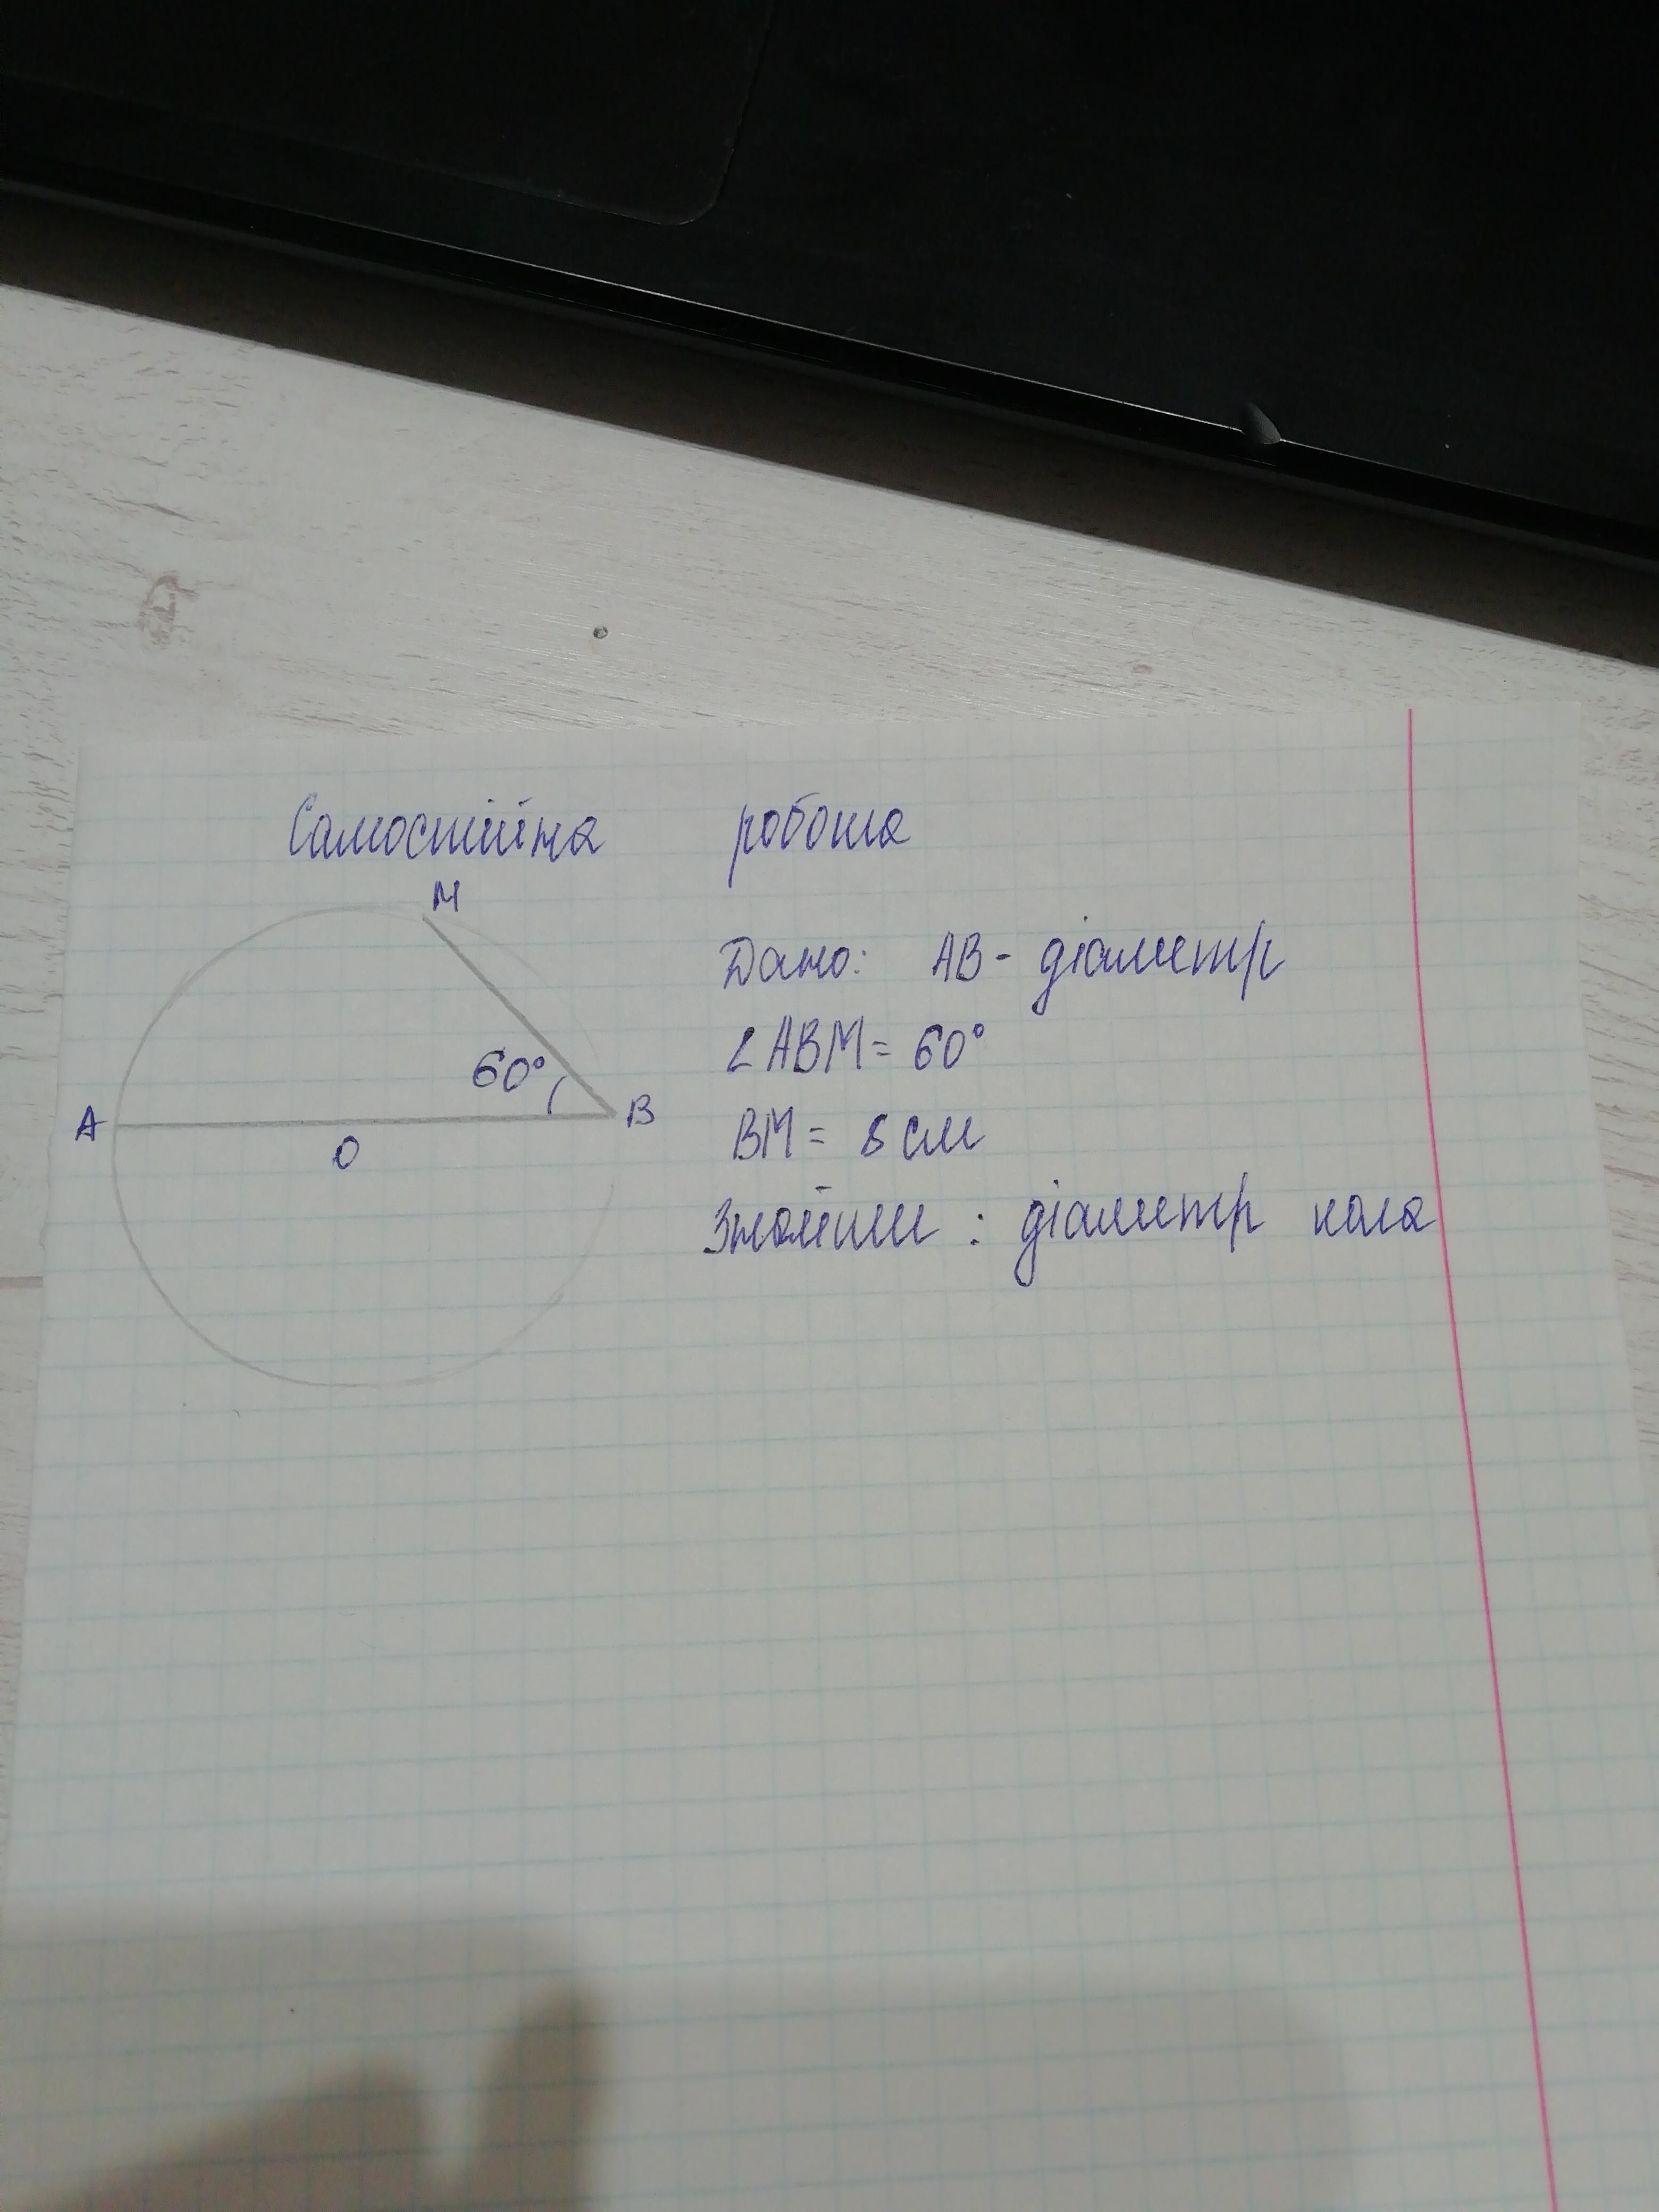 Самостійна робота
M
Дано: AB - діаметр
∠ABM = 60°
60°
A
B
O
BM = 8 см
Знайти : діаметр кола